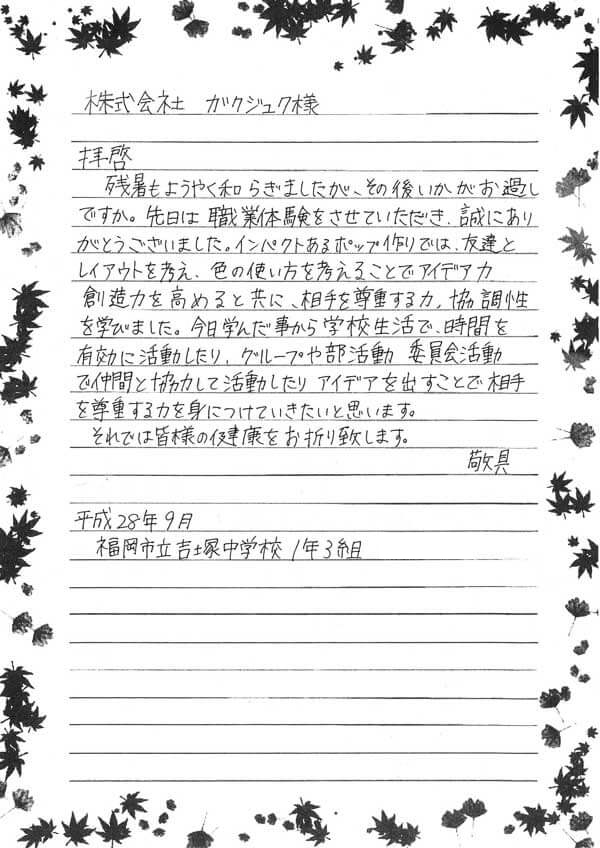 株式会社 ガクジュク様
拝啓
残暑もようやく和らぎましたが、その後いかがお過し
ですか。先日は職業体験をさせていただき、誠にあり
がとうございました。インパクトあるポップ作りでは、友達と
レイアウトを考え、色の使い方を考えることでアイデア力
創造力を高めると共に、相手を尊重する力、協調性
を学びました。今日学んだ事から学校生活で、時間を
有効に活動したり、グループや部活動 委員会活動
で仲間と協力して活動したりアイデアを出すことで相手
を尊重する力を身につけていきたいと思います。
それでは皆様の健康をお祈り致します。
敬具
平成28年9月
福岡市立吉塚中学校 1年3組